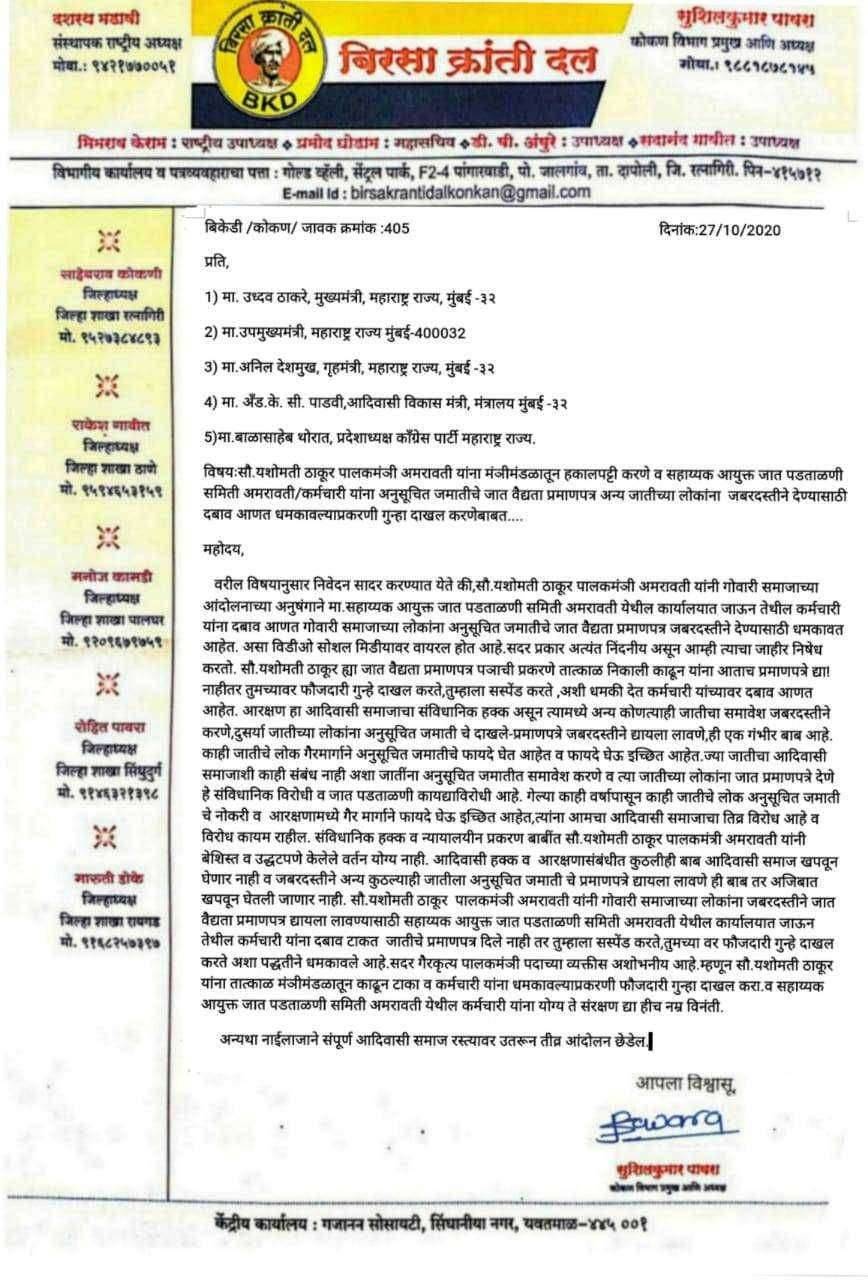 दशरथ मडावी
संस्थापक राष्ट्रीय अध्यक्ष
मोबा.: ९४२१७७००५१
बिरसा क्रांती दल
BKD
बिरसा क्रांती दल
सुशिलकुमार पावरा
कोकण विभाग प्रमुख आणि अध्यक्ष
मोबा.: ९८८१८७८१४५
भिमराव केराम : राष्ट्रीय उपाध्यक्ष ❖ प्रमोद घोडाम : महासचिव ❖ डी. पी. अंघुरे : उपाध्यक्ष ❖ सदानंद गावीत : उपाध्यक्ष
विभागीय कार्यालय व पत्रव्यवहाराचा पत्ता : गोल्ड व्हॅली, सेंट्रल पार्क, F2-4 पांगारवाडी, पो. जालगांव, ता. दापोली, जि. रत्नागिरी. पिन-४१५७१२
E-mail Id : birsakrantidalkonkan@gmail.com
साहेबराव कोकणी
जिल्हाध्यक्ष
जिल्हा शाखा रत्नागिरी
मो. ९५२७३८४८९३
राकेश गावीत
जिल्हाध्यक्ष
जिल्हा शाखा ठाणे
मो. ९५९४६५३१५९
मनोज कामडी
जिल्हाध्यक्ष
जिल्हा शाखा पालघर
मो. ९२०९६७१७५९
रोहित पावरा
जिल्हाध्यक्ष
जिल्हा शाखा सिंधुदुर्ग
मो. ९१४६३२१३९८
मारुती डोके
जिल्हाध्यक्ष
जिल्हा शाखा रायगड
मो. ९१६८२५७३९७
बिकेडी /कोकण/ जावक क्रमांक :405
दिनांक:27/10/2020
प्रति,
1) मा. उध्दव ठाकरे, मुख्यमंत्री, महाराष्ट्र राज्य, मुंबई -३२
2) मा.उपमुख्यमंत्री, महाराष्ट्र राज्य मुंबई-400032
3) मा.अनिल देशमुख, गृहमंत्री, महाराष्ट्र राज्य, मुंबई -३२
4) मा. अँड.के. सी. पाडवी,आदिवासी विकास मंत्री, मंत्रालय मुंबई -३२
5)मा.बाळासाहेब थोरात, प्रदेशाध्यक्ष काँग्रेस पार्टी महाराष्ट्र राज्य.
विषयःसौ.यशोमती ठाकूर पालकमंञी अमरावती यांना मंञीमंडळातून हकालपट्टी करणे व सहाय्यक आयुक्त जात पडताळणी
समिती अमरावती/कर्मचारी यांना अनुसूचित जमातीचे जात वैद्यता प्रमाणपत्र अन्य जातीच्या लोकांना जबरदस्तीने देण्यासाठी
दबाव आणत धमकावल्याप्रकरणी गुन्हा दाखल करणेबाबत....
महोदय,
वरील विषयानुसार निवेदन सादर करण्यात येते की,सौ.यशोमती ठाकूर पालकमंञी अमरावती यांनी गोवारी समाजाच्या
आंदोलनाच्या अनुषंगाने मा.सहाय्यक आयुक्त जात पडताळणी समिती अमरावती येथील कार्यालयात जाऊन तेथील कर्मचारी
यांना दबाव आणत गोवारी समाजाच्या लोकांना अनुसूचित जमातीचे जात वैद्यता प्रमाणपत्र जबरदस्तीने देण्यासाठी धमकावत
आहेत. असा विडीओ सोशल मिडीयावर वायरल होत आहे.सदर प्रकार अत्यंत निंदनीय असून आम्ही त्याचा जाहीर निषेध
करतो. सौ.यशोमती ठाकूर ह्या जात वैद्यता प्रमाणपत्र पञाची प्रकरणे तात्काळ निकाली काढून यांना आताच प्रमाणपत्रे द्या!
नाहीतर तुमच्यावर फौजदारी गुन्हे दाखल करते,तुम्हाला सस्पेंड करते ,अशी धमकी देत कर्मचारी यांच्यावर दबाव आणत
आहेत. आरक्षण हा आदिवासी समाजाचा संविधानिक हक्क असून त्यामध्ये अन्य कोणत्याही जातीचा समावेश जबरदस्तीने
करणे,दुसर्या जातीच्या लोकांना अनुसूचित जमाती चे दाखले-प्रमाणपत्रे जबरदस्तीने द्यायला लावणे,ही एक गंभीर बाब आहे.
काही जातीचे लोक गैरमार्गाने अनुसूचित जमातीचे फायदे घेत आहेत व फायदे घेऊ इच्छित आहेत.ज्या जातीचा आदिवासी
समाजाशी काही संबंध नाही अशा जातींना अनुसूचित जमातीत समावेश करणे व त्या जातीच्या लोकांना जात प्रमाणपत्रे देणे
हे संविधानिक विरोधी व जात पडताळणी कायद्याविरोधी आहे. गेल्या काही वर्षापासून काही जातीचे लोक अनुसूचित जमाती
चे नोकरी व आरक्षणामध्ये गैर मार्गाने फायदे घेऊ इच्छित आहेत,त्यांना आमचा आदिवासी समाजाचा तिव्र विरोध आहे व
विरोध कायम राहील. संविधानिक हक्क व न्यायालयीन प्रकरण बाबींत सौ.यशोमती ठाकूर पालकमंत्री अमरावती यांनी
बेशिस्त व उद्धटपणे केलेले वर्तन योग्य नाही. आदिवासी हक्क व आरक्षणासंबंधीत कुठलीही बाब आदिवासी समाज खपवून
घेणार नाही व जबरदस्तीने अन्य कुठल्याही जातीला अनुसूचित जमाती चे प्रमाणपत्रे द्यायला लावणे ही बाब तर अजिबात
खपवून घेतली जाणार नाही. सौ.यशोमती ठाकूर पालकमंत्री अमरावती यांनी गोवारी समाजाच्या लोकांना जबरदस्तीने जात
वैद्यता प्रमाणपत्र द्यायला लावण्यासाठी सहाय्यक आयुक्त जात पडताळणी समिती अमरावती येथील कार्यालयात जाऊन
तेथील कर्मचारी यांना दबाव टाकत जातीचे प्रमाणपत्र दिले नाही तर तुम्हाला सस्पेंड करते,तुमच्या वर फौजदारी गुन्हे दाखल
करते अशा पद्धतीने धमकावले आहे.सदर गैरकृत्य पालकमंञी पदाच्या व्यक्तीस अशोभनीय आहे.म्हणून सौ.यशोमती ठाकूर
यांना तात्काळ मंञीमंडळातून काढून टाका व कर्मचारी यांना धमकावल्याप्रकरणी फौजदारी गुन्हा दाखल करा.व सहाय्यक
आयुक्त जात पडताळणी समिती अमरावती येथील कर्मचारी यांना योग्य ते संरक्षण द्या हीच नम्र विनंती.
अन्यथा नाईलाजाने संपूर्ण आदिवासी समाज रस्त्यावर उतरून तीव्र आंदोलन छेडेल.
आपला विश्वासू,
Bawara
सुशिलकुमार पावरा
कोकण विभाग प्रमुख आणि अध्यक्ष
केंद्रीय कार्यालय : गजानन सोसायटी, सिंघानीया नगर, यवतमाळ-४४५ ००१